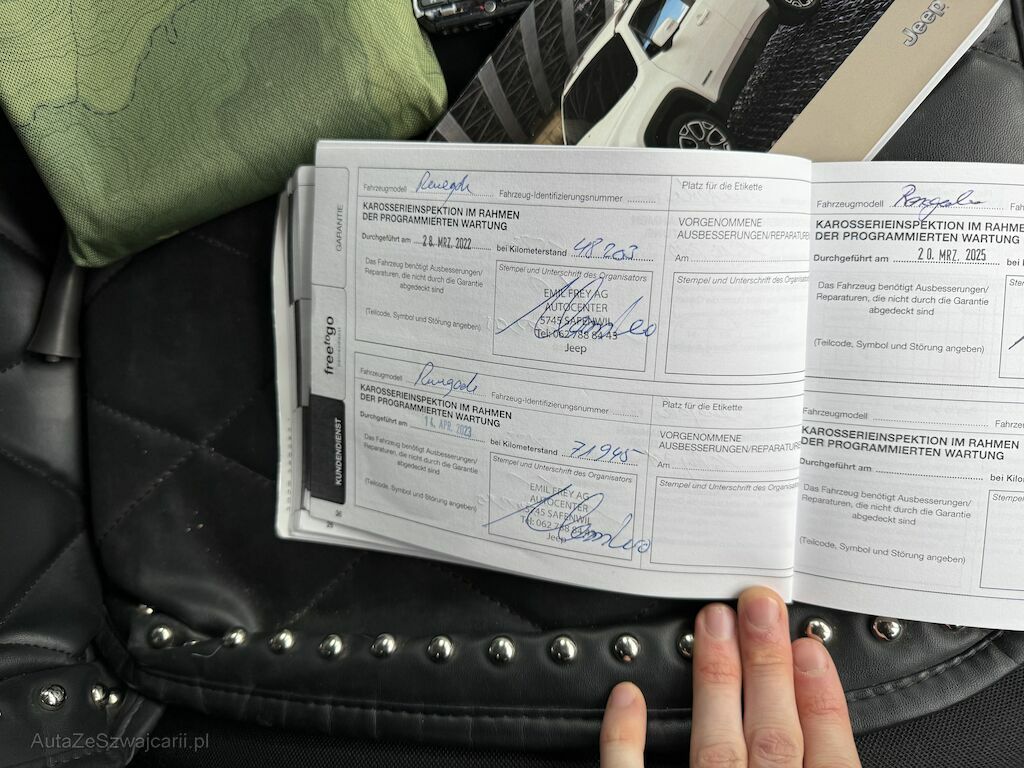 Jeep
GARANTIE
freetogo
KUNDENDIENST
Fahrzeugmodell Renegade Fahrzeug-Identifizierungsnummer
Platz für die Etikette
KAROSSERIEINSPEKTION IM RAHMEN
DER PROGRAMMIERTEN WARTUNG
VORGENOMMENE
AUSBESSERUNGEN/REPARATUREN
Durchgeführt am 28. MRZ. 2022 bei Kilometerstand 48203
Am
Das Fahrzeug benötigt Ausbesserungen/
Reparaturen, die nicht durch die Garantie
abgedeckt sind
(Teilcode, Symbol und Störung angeben)
Stempel und Unterschrift des Organisators
EMIL FREY AG
AUTOCENTER
5745 SAFENWIL
Tel: 062 788 84 43
Jeep
Stempel und Unterschrift des Organisators
Fahrzeugmodell Renegade Fahrzeug-Identifizierungsnummer
Platz für die Etikette
KAROSSERIEINSPEKTION IM RAHMEN
DER PROGRAMMIERTEN WARTUNG
VORGENOMMENE
AUSBESSERUNGEN/REPARATUREN
Durchgeführt am 14. APR. 2023 bei Kilometerstand 71945
Am
Das Fahrzeug benötigt Ausbesserungen/
Reparaturen, die nicht durch die Garantie
abgedeckt sind
(Teilcode, Symbol und Störung angeben)
Stempel und Unterschrift des Organisators
EMIL FREY AG
AUTOCENTER
5745 SAFENWIL
Tel: 062 788 84
Jeep
Stempel und Unterschrift des Organisa
Fahrzeugmodell Renegade Fa
KAROSSERIEINSPEKTION IM RAHMEN
DER PROGRAMMIERTEN WARTUNG
Durchgeführt am 20. MRZ. 2025 bei
Das Fahrzeug benötigt Ausbesserungen/
Reparaturen, die nicht durch die Garantie
abgedeckt sind
(Teilcode, Symbol und Störung angeben)
Ste
Fahrzeugmodell Fahrze
KAROSSERIEINSPEKTION IM RAHMEN
DER PROGRAMMIERTEN WARTUNG
Durchgeführt am bei Kilo
Das Fahrzeug benötigt Ausbesserungen/
Reparaturen, die nicht durch die Garantie
abgedeckt sind
(Teilcode, Symbol und Störung angeben)
Stempel
AutaZeSzwajcarii.pl